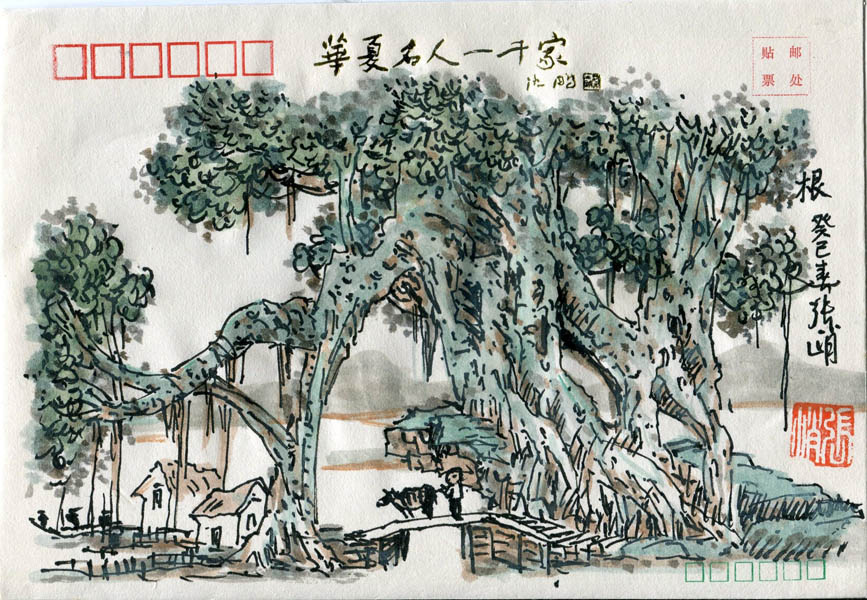 華夏名人一千家
沈鹏
贴 邮
票 处
根
癸巳春张峭